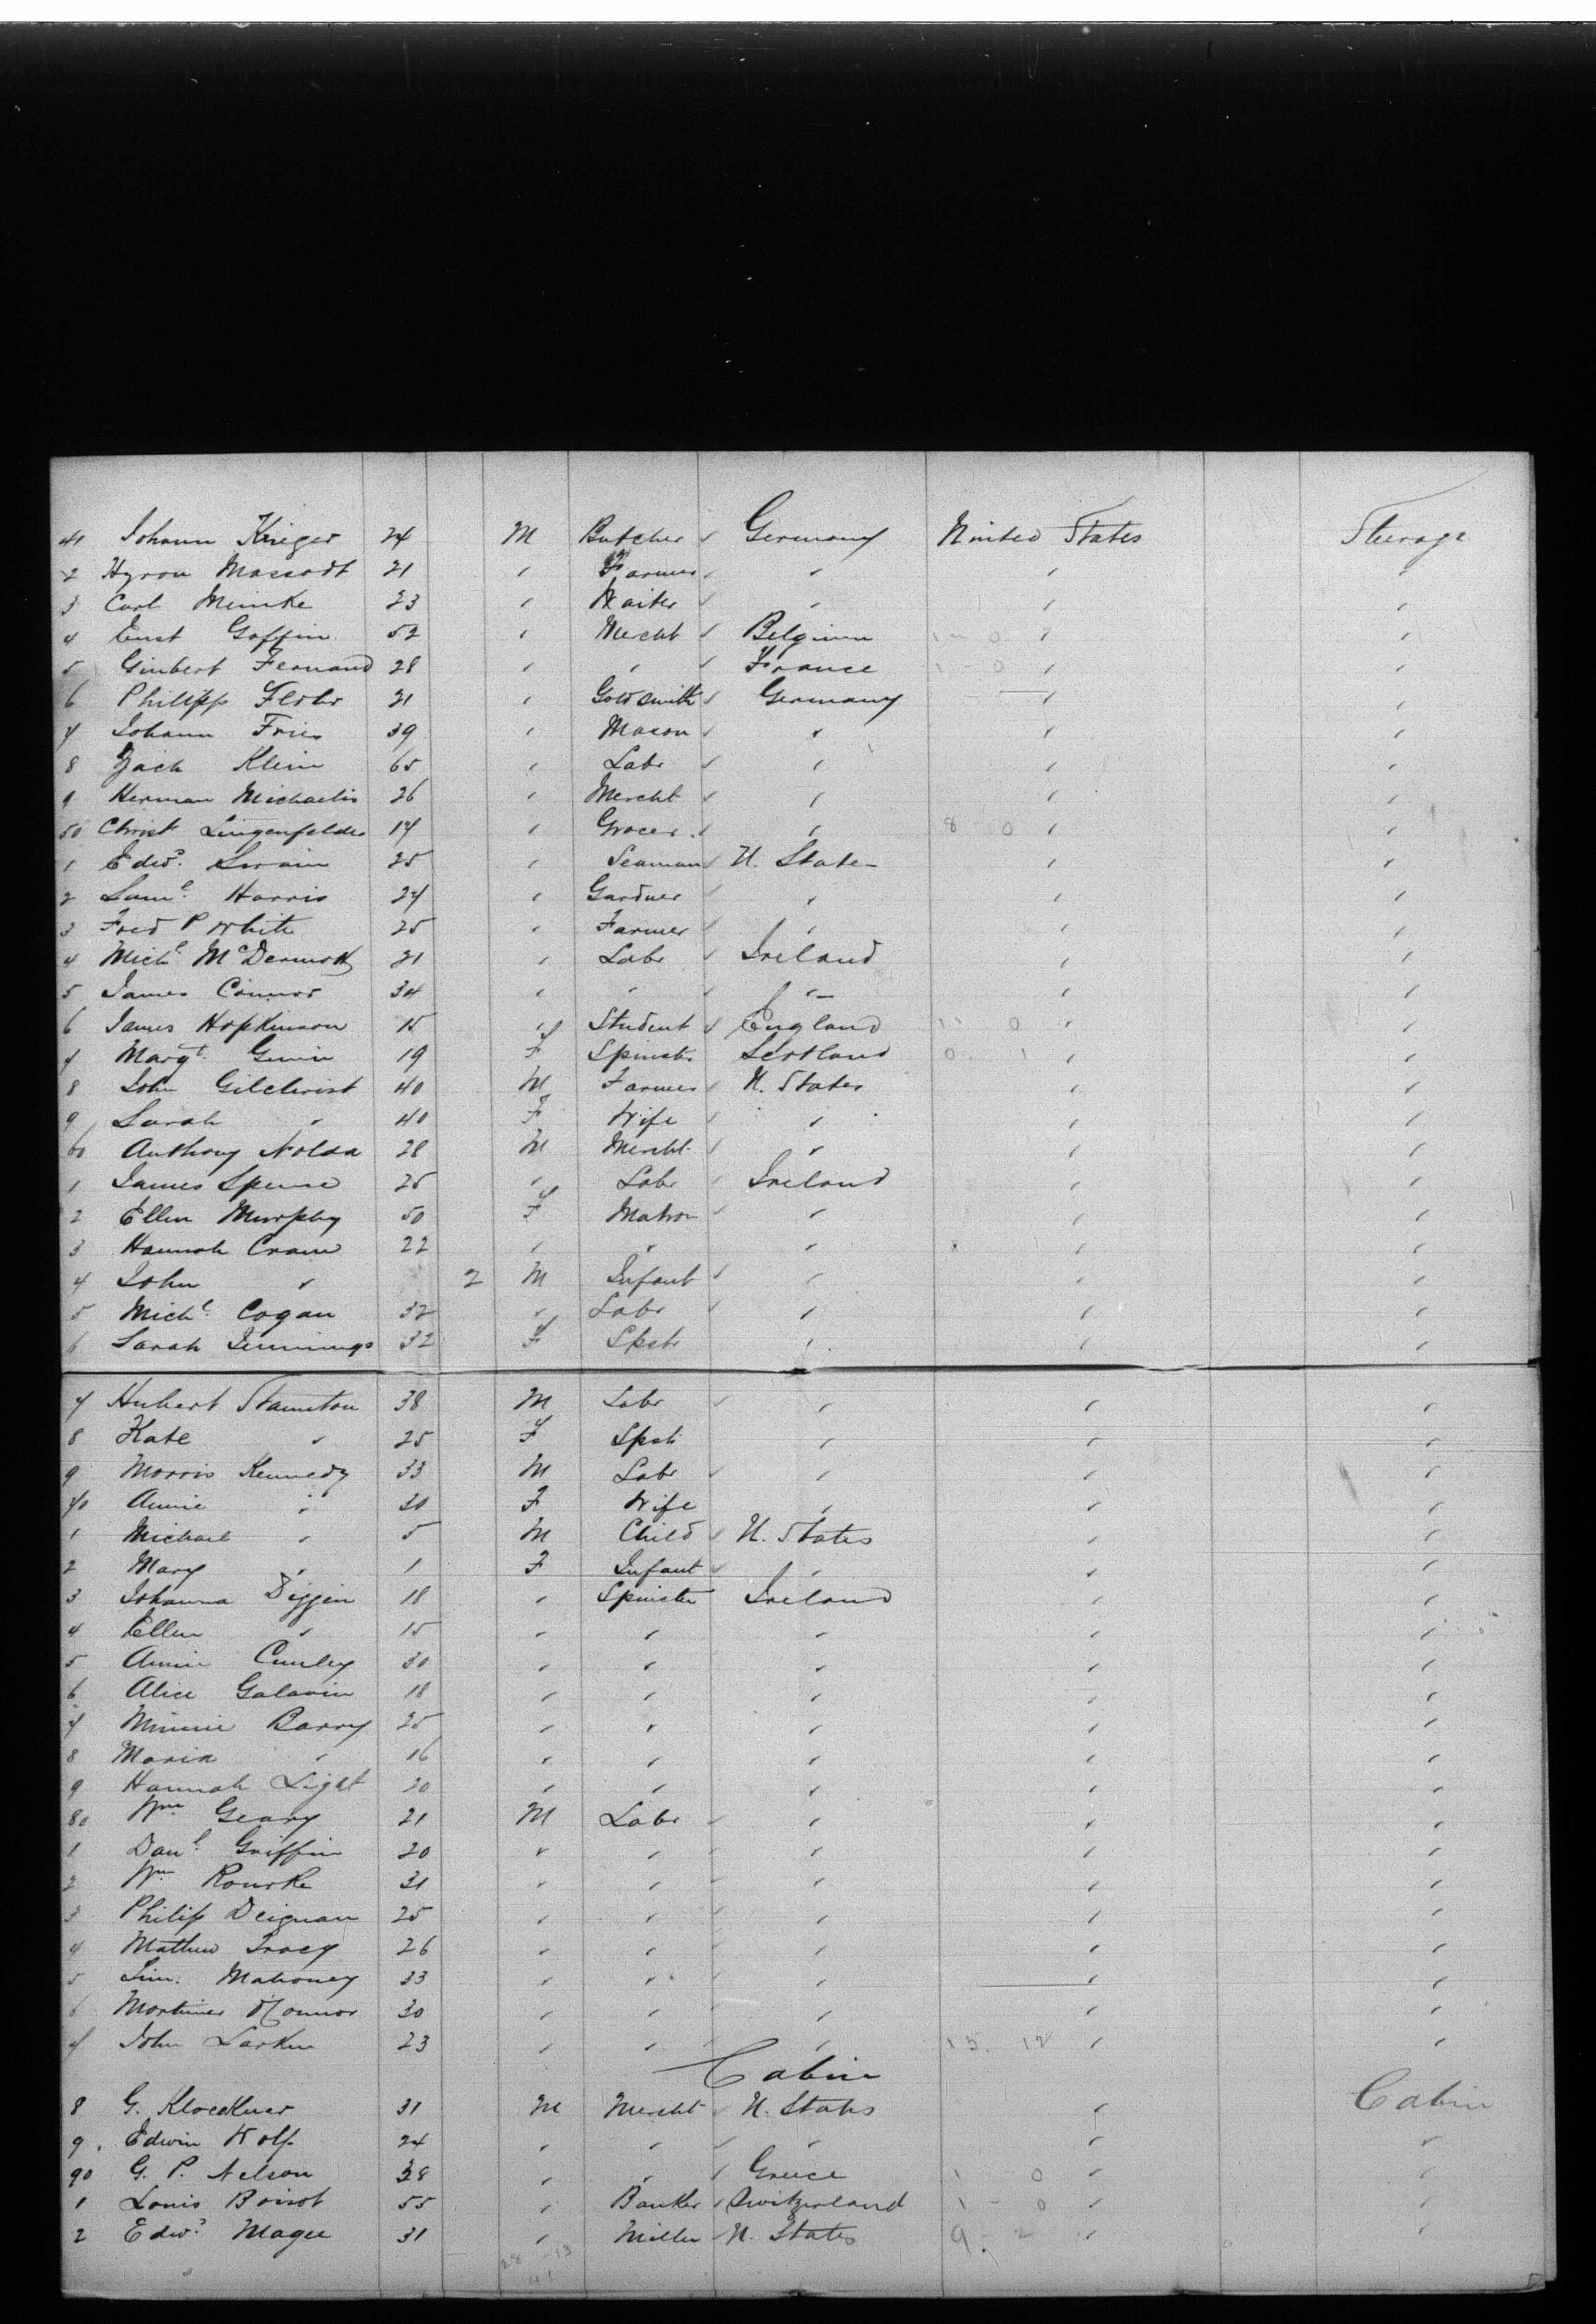 41 Johann Krieger 24 M Butcher Germany United States Steerage
2 Hyron Massodt 21 " Farmer " " "
3 Carl Meinke 23 " Waiter " " "
4 Ernst Goffin 52 " Mercht Belgium 1-0 " "
5 Gimbert Fernand 28 " " France 1 0 " "
6 Philipp Flohr 21 " Goldsmith Germany " "
7 Johann Fries 39 " Mason " " "
8 Zach Klein 65 " Labr " " "
9 Herman Michaelis 26 " Mercht " " "
50 Christ Lingenfelder 17 " Grocer " 8-0 " "
1 Edwd. Swain 25 " Seaman U. State " "
2 Saml. Harris 24 " Gardner " " "
3 Fred P White 25 " Farmer " " "
4 Michl. McDermott 21 " Labr Ireland " "
5 James Connor 34 " " " " "
6 James Hopkinson 15 " Student England 1 0 " "
7 Margt. 19 F Spinstr Scotland 0 1 " "
8 John Gilchrist 40 M Farmer U. States " "
9 Sarah " 40 F Wife " " "
60 Anthony Nolda 28 M Mercht " " "
1 James Spence 25 " Labr Ireland " "
2 Ellen Murphy 50 F Matron " " "
3 Hannah 22 " " " " "
4 John " 2 M Infant " " "
5 Michl. Cogan 32 " Labr " " "
6 Sarah Jennings 32 F Spstr " " "
7 Hubert Staunton 38 M Labr " " "
8 Kate " 25 F Spstr " " "
9 Morris Kennedy 33 M Labr " " "
70 Annie " 30 F Wife " " "
1 Michael " 5 M Child U. States " "
2 Mary " 1 F Infant " " "
3 Johanna Diggin 18 " Spinster Ireland " "
4 Ellen " 15 " " " " "
5 Annie Cunley 30 " " " " "
6 Alice Galavin 18 " " " " "
7 Minnie Barry 25 " " " " "
8 Maria " 16 " " " " "
9 Hannah Light 20 " " " " "
80 Wm. Geary 21 M Labr " " "
1 Danl. Griffin 20 " " " " "
2 Wm Rourke 31 " " " " "
3 Philip Deignan 25 " " " " "
4 Mathew Tracy 26 " " " " "
5 Mahoney 33 " " " " "
6 Mortimer O'Connor 30 " " " " "
7 John Larkin 23 " " " 15. 12 " "
Cabin
8 G. Kloeckner 31 M Mercht U. States " Cabin
9 Edwin Wolf 24 " " " " "
90 G. P. Nelson 38 " " Greece 1 0 " "
1 Louis Boisot 55 " Banker Switzerland 1-0 " "
2 Edwd. Magee 31 " Miller U. States 9. 2 " "
28 13
41